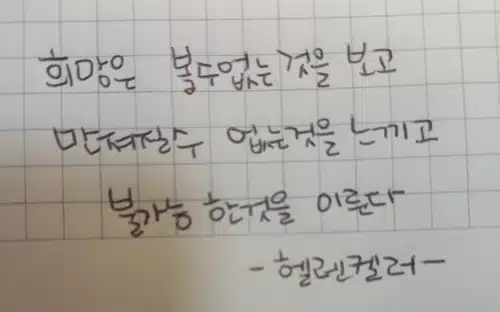 희망은 볼수없는것을 보고
만져질수 없는것을 느끼고
불가능 한것을 이룬다
- 헬렌켈러 -